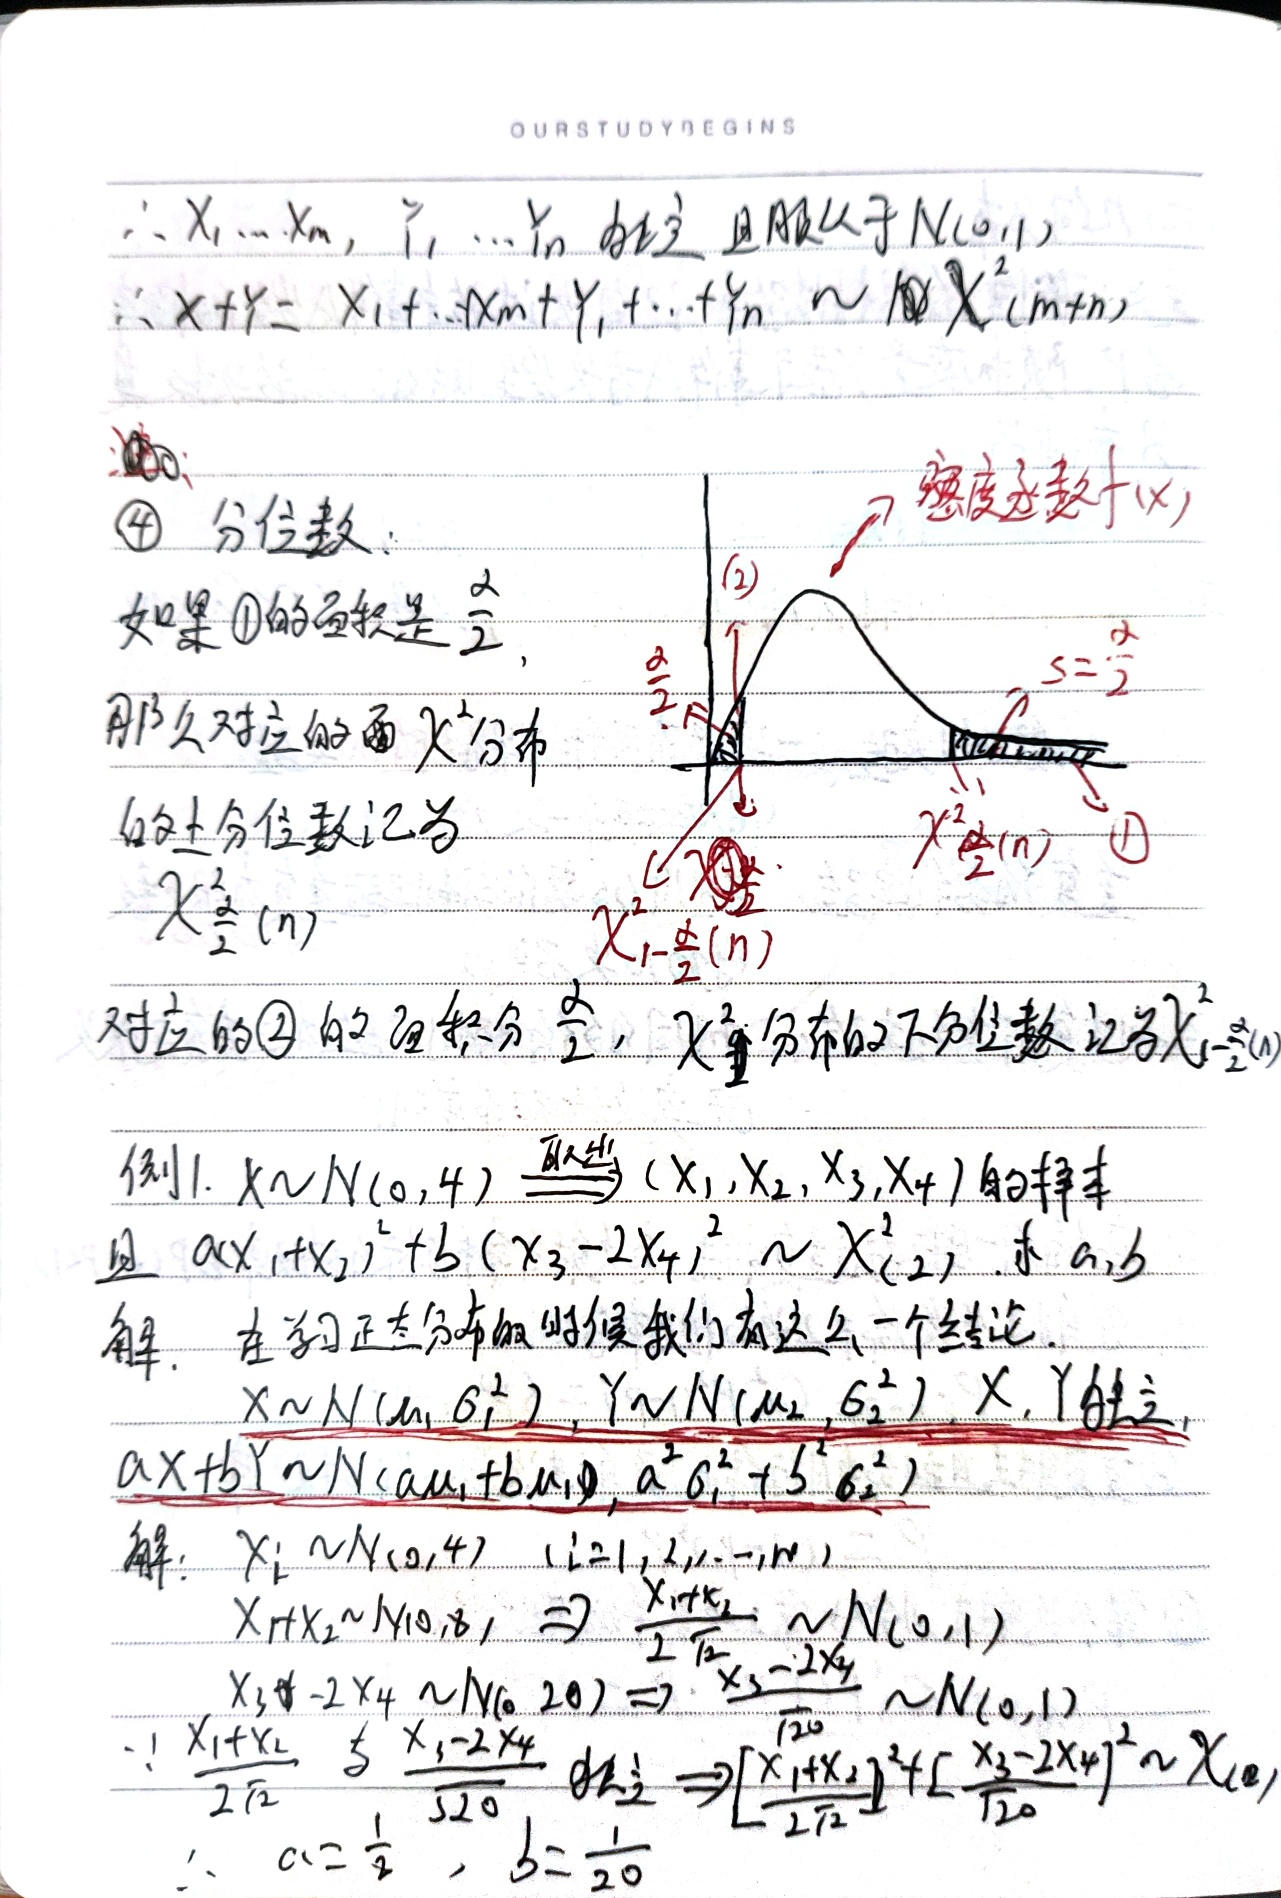 OURSTUDYBEGINS
∴ X₁…Xₘ, Y₁…Yₙ 独立 且服从于N(0,1)
∴ X+Y= X₁+…Xₘ+Y₁+…+Yₙ ~ χ²(m+n)
④ 分位数:
如果①的面积是 α/2,
那么对应的 χ²分布
的上分位数记为
χ²_{α/2}(n)
密度函数f(x)
(2)
α/2
S=α/2
χ²_{α/2}(n) ①
χ²_{1-α/2}(n)
对应的②的面积分 α/2, χ² 分布的下分位数记为χ²_{1-α/2}(n)
例1. X~N(0,4) ⟹ (X₁,X₂,X₃,X₄)的样本
且 a(X₁+X₂)²+b(X₃-2X₄)² ~ χ²(2). 求 a,b
解. 在学习正态分布的时候我们有这么一个结论.
X~N(μ₁,σ₁²), Y~N(μ₂,σ₂²), X, Y独立,
aX+bY~N(aμ₁+bμ₁, a²σ₁²+b²σ₂²)
解: Xᵢ ~N(0,4) (i=1,2,…,n)
X₁+X₂~N(0,8) ⇒ (X₁+X₂)/(2√2) ~N(0,1)
X₃-2X₄ ~N(0 20) ⇒ (X₃-2X₄)/√20 ~N(0,1)
∵ (X₁+X₂)/(2√2) 与 (X₃-2X₄)/√20 独立 ⇒[(X₁+X₂)/(2√2)]²+[(X₃-2X₄)/√20]² ~ χ(2)
∴ a=1/8, b=1/20